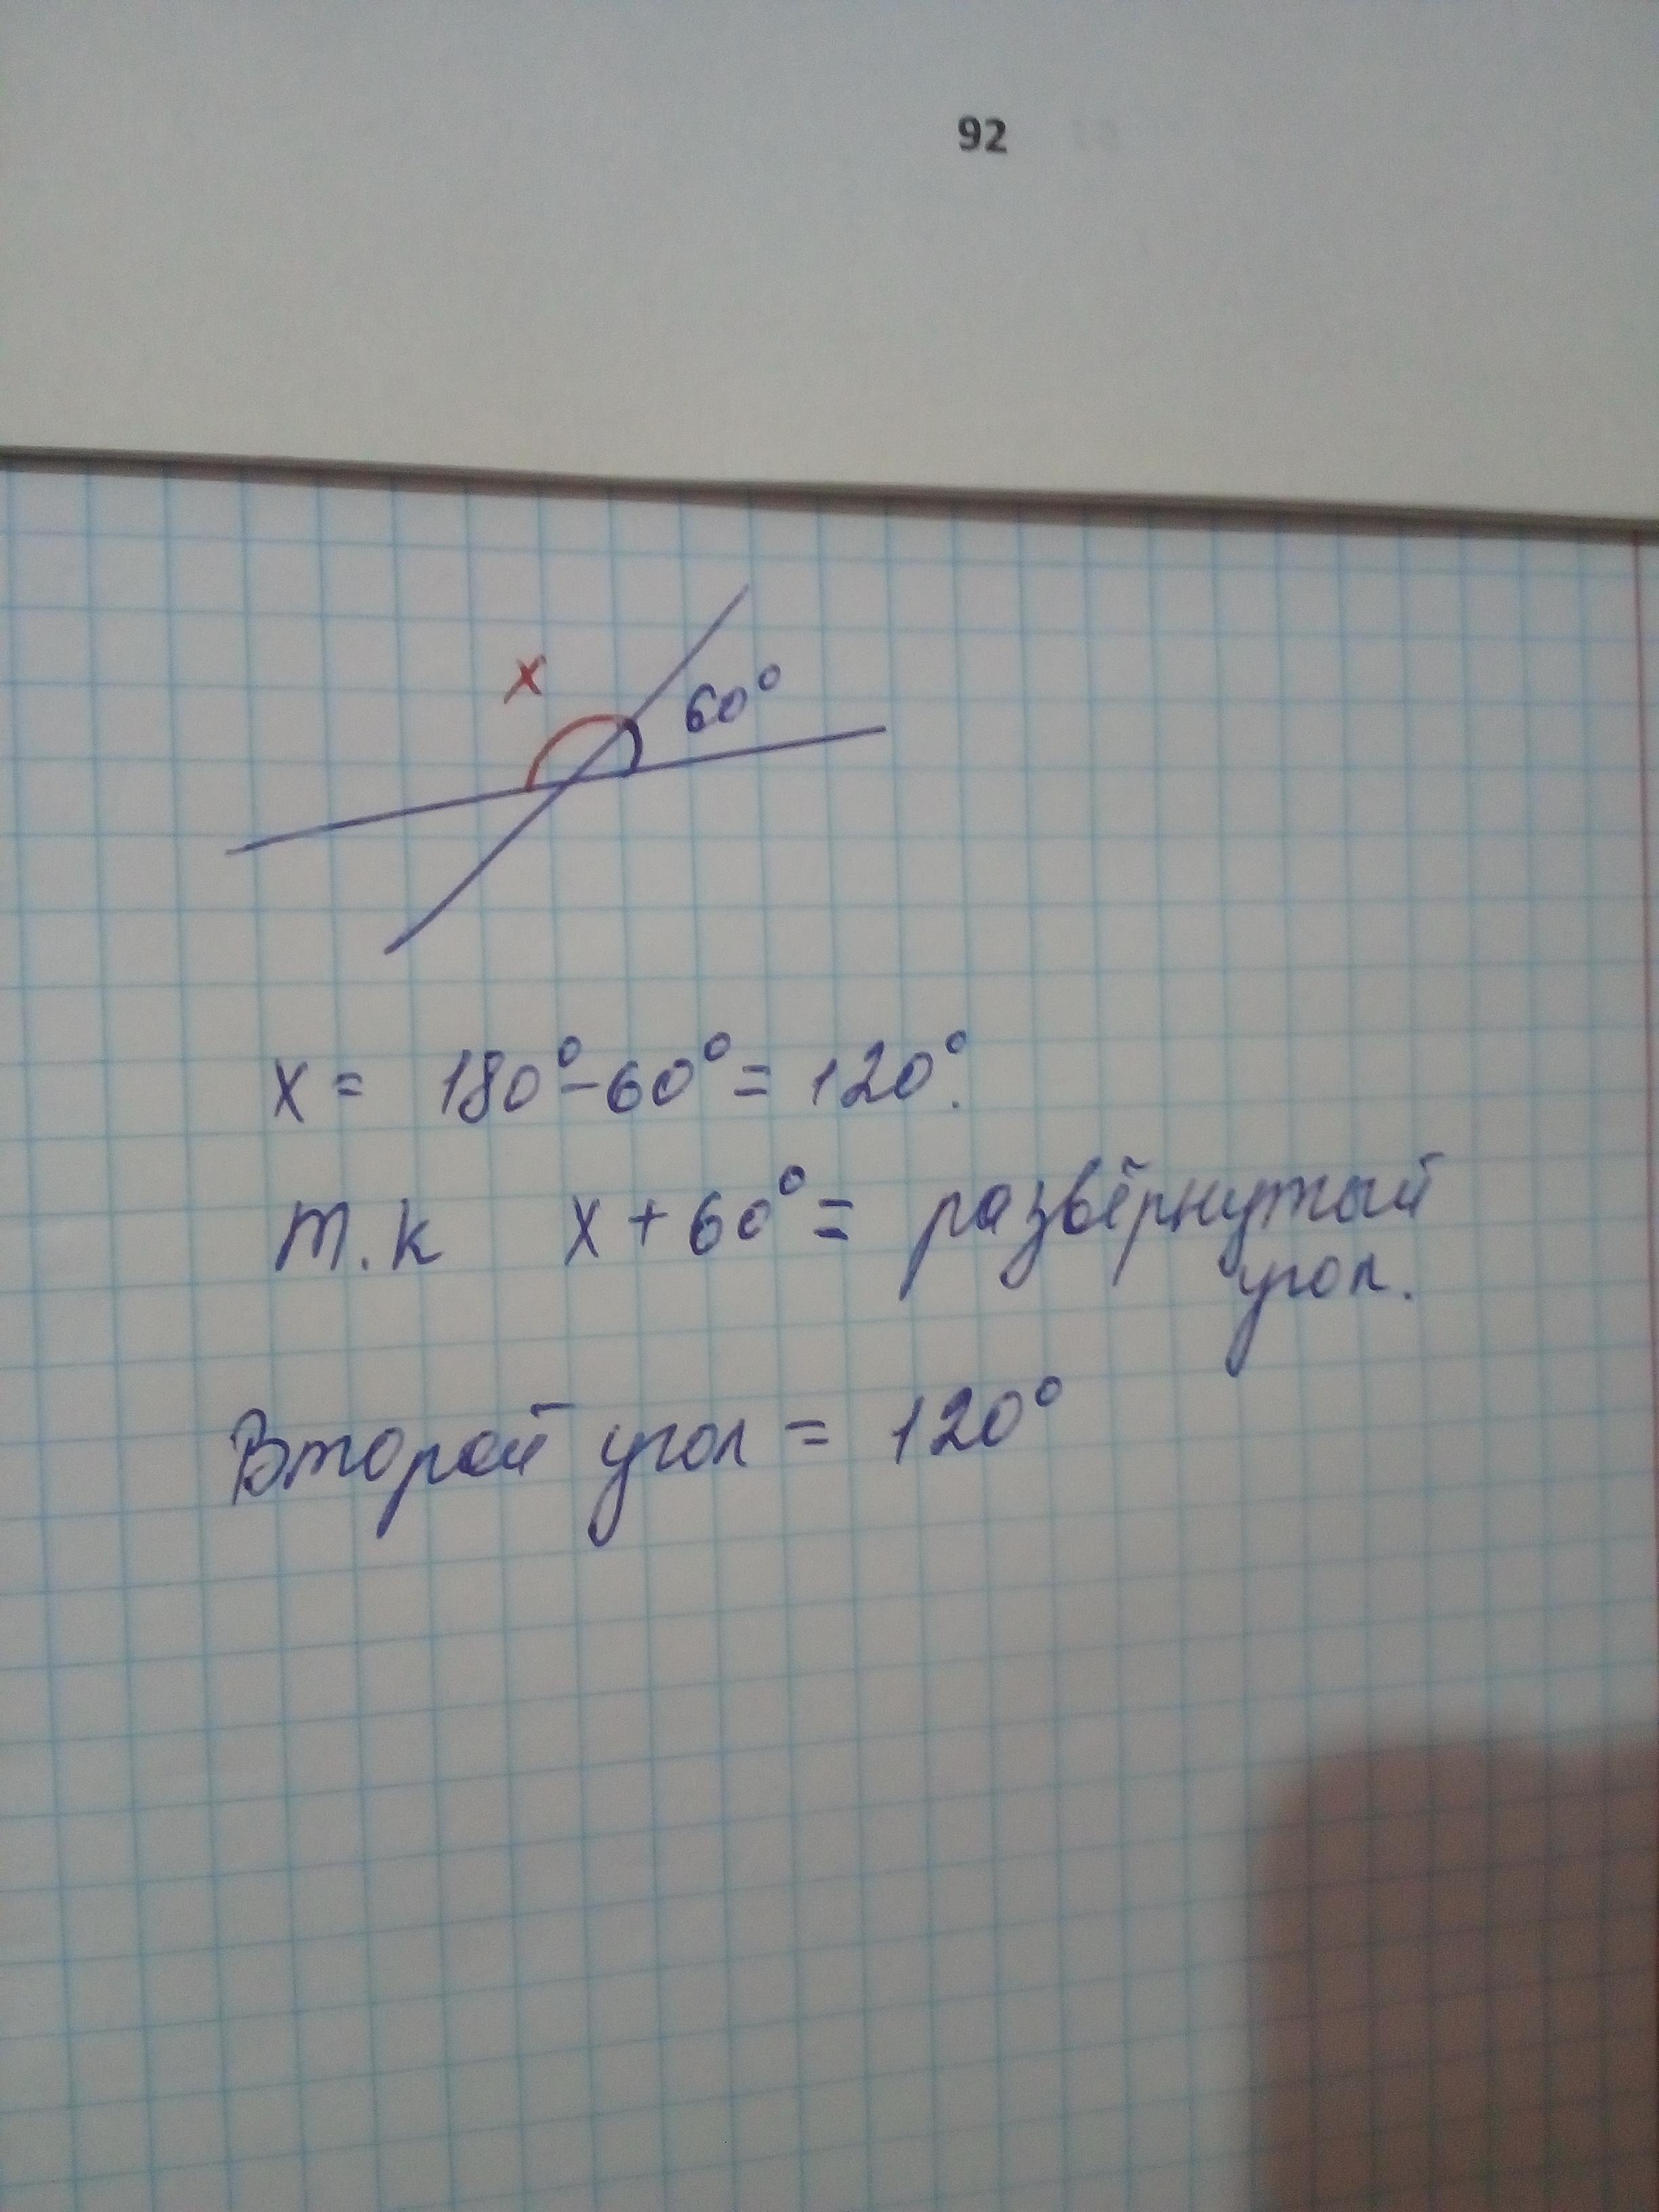 92
x
60°
x = 180° - 60° = 120°.
т.к x + 60° = развёрнутый
угол.
Второй угол = 120°